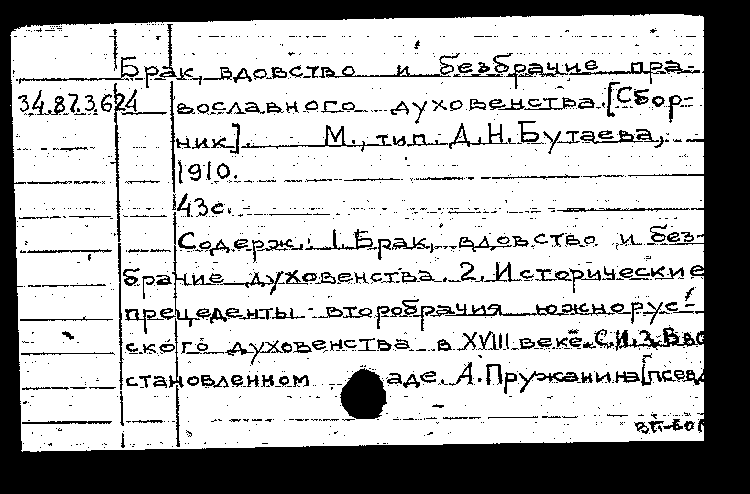 Брак, вдовство и безбрачие пра-
34.87.3.624 вославного духовенства. [Сбор-
ник]. М., тип. Д.Н. Бутаева,
1910.
43с.
Содерж.: 1. Брак, вдовство и без-
брачие духовенства. 2. Исторические
прецеденты второбрачия южнорус-
ского духовенства в XVIII веке. С.И. 3. В
становленном аде. А. Пружанина [псевд